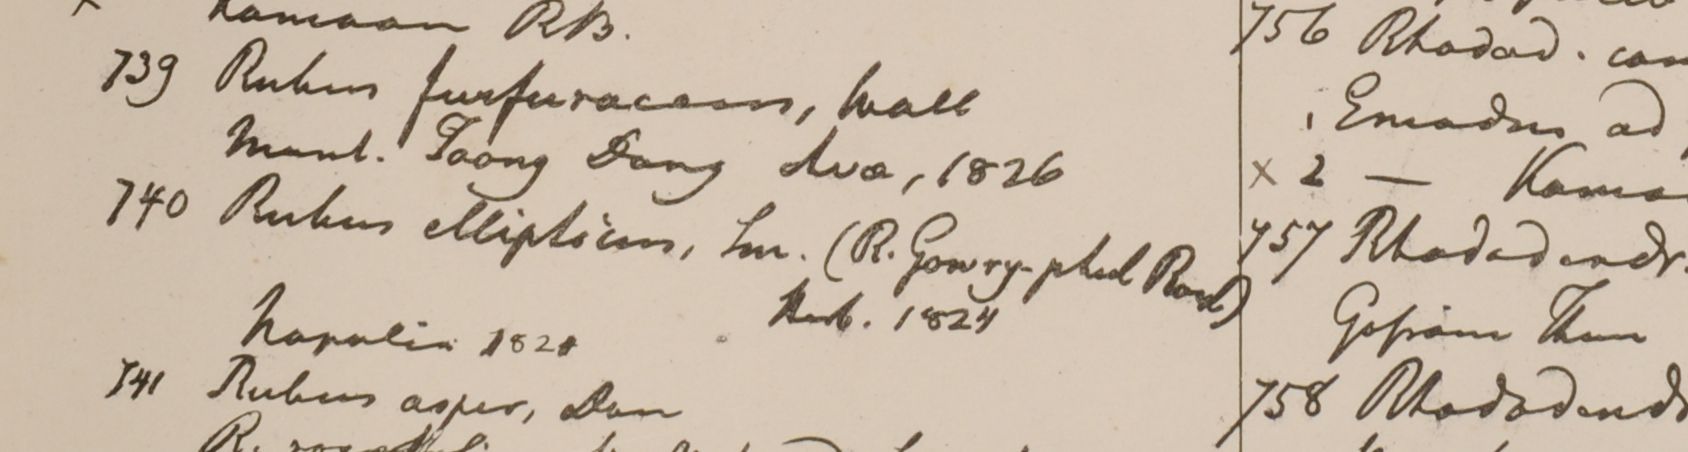 Kamaon RB.
739 Rubus furfuraceus, Wall
Mont. Taong Dong Ava, 1826
740 Rubus ellipticus, Sm. (R. Gowry-phul Roxb)
Napalia 1821
Herb. 1824
741 Rubus asper, Don
756 Rhodod. cam
Emodus ad
× 2 — Kamao
757 Rhododendr.
Gossain Than
758 Rhododend